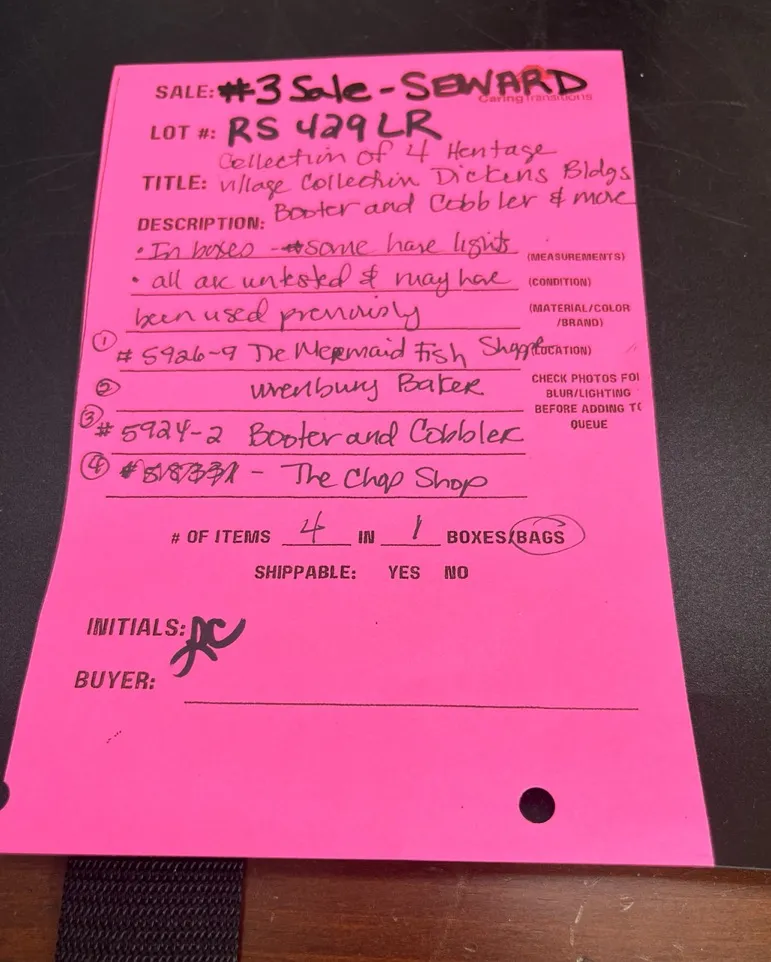 SALE: #3 Sale - SEWARD
Caring Transitions
LOT #: RS 429 LR
Collection of 4 Heritage
TITLE: village Collection Dickens Bldgs
Booter and Cobbler & more
DESCRIPTION:
• In boxes - some have lights (MEASUREMENTS)
• all are untested & may have (CONDITION)
been used previously (MATERIAL/COLOR
/BRAND)
① # 5926-9 The Mermaid Fish Shoppe (LOCATION)
② Wrenbury Baker
CHECK PHOTOS FO
BLUR/LIGHTING
BEFORE ADDING TO
QUEUE
③ # 5924-2 Booter and Cobbler
④ # - The Chop Shop
# OF ITEMS 4 IN 1 BOXES/BAGS
SHIPPABLE: YES NO
INITIALS: RC
BUYER: